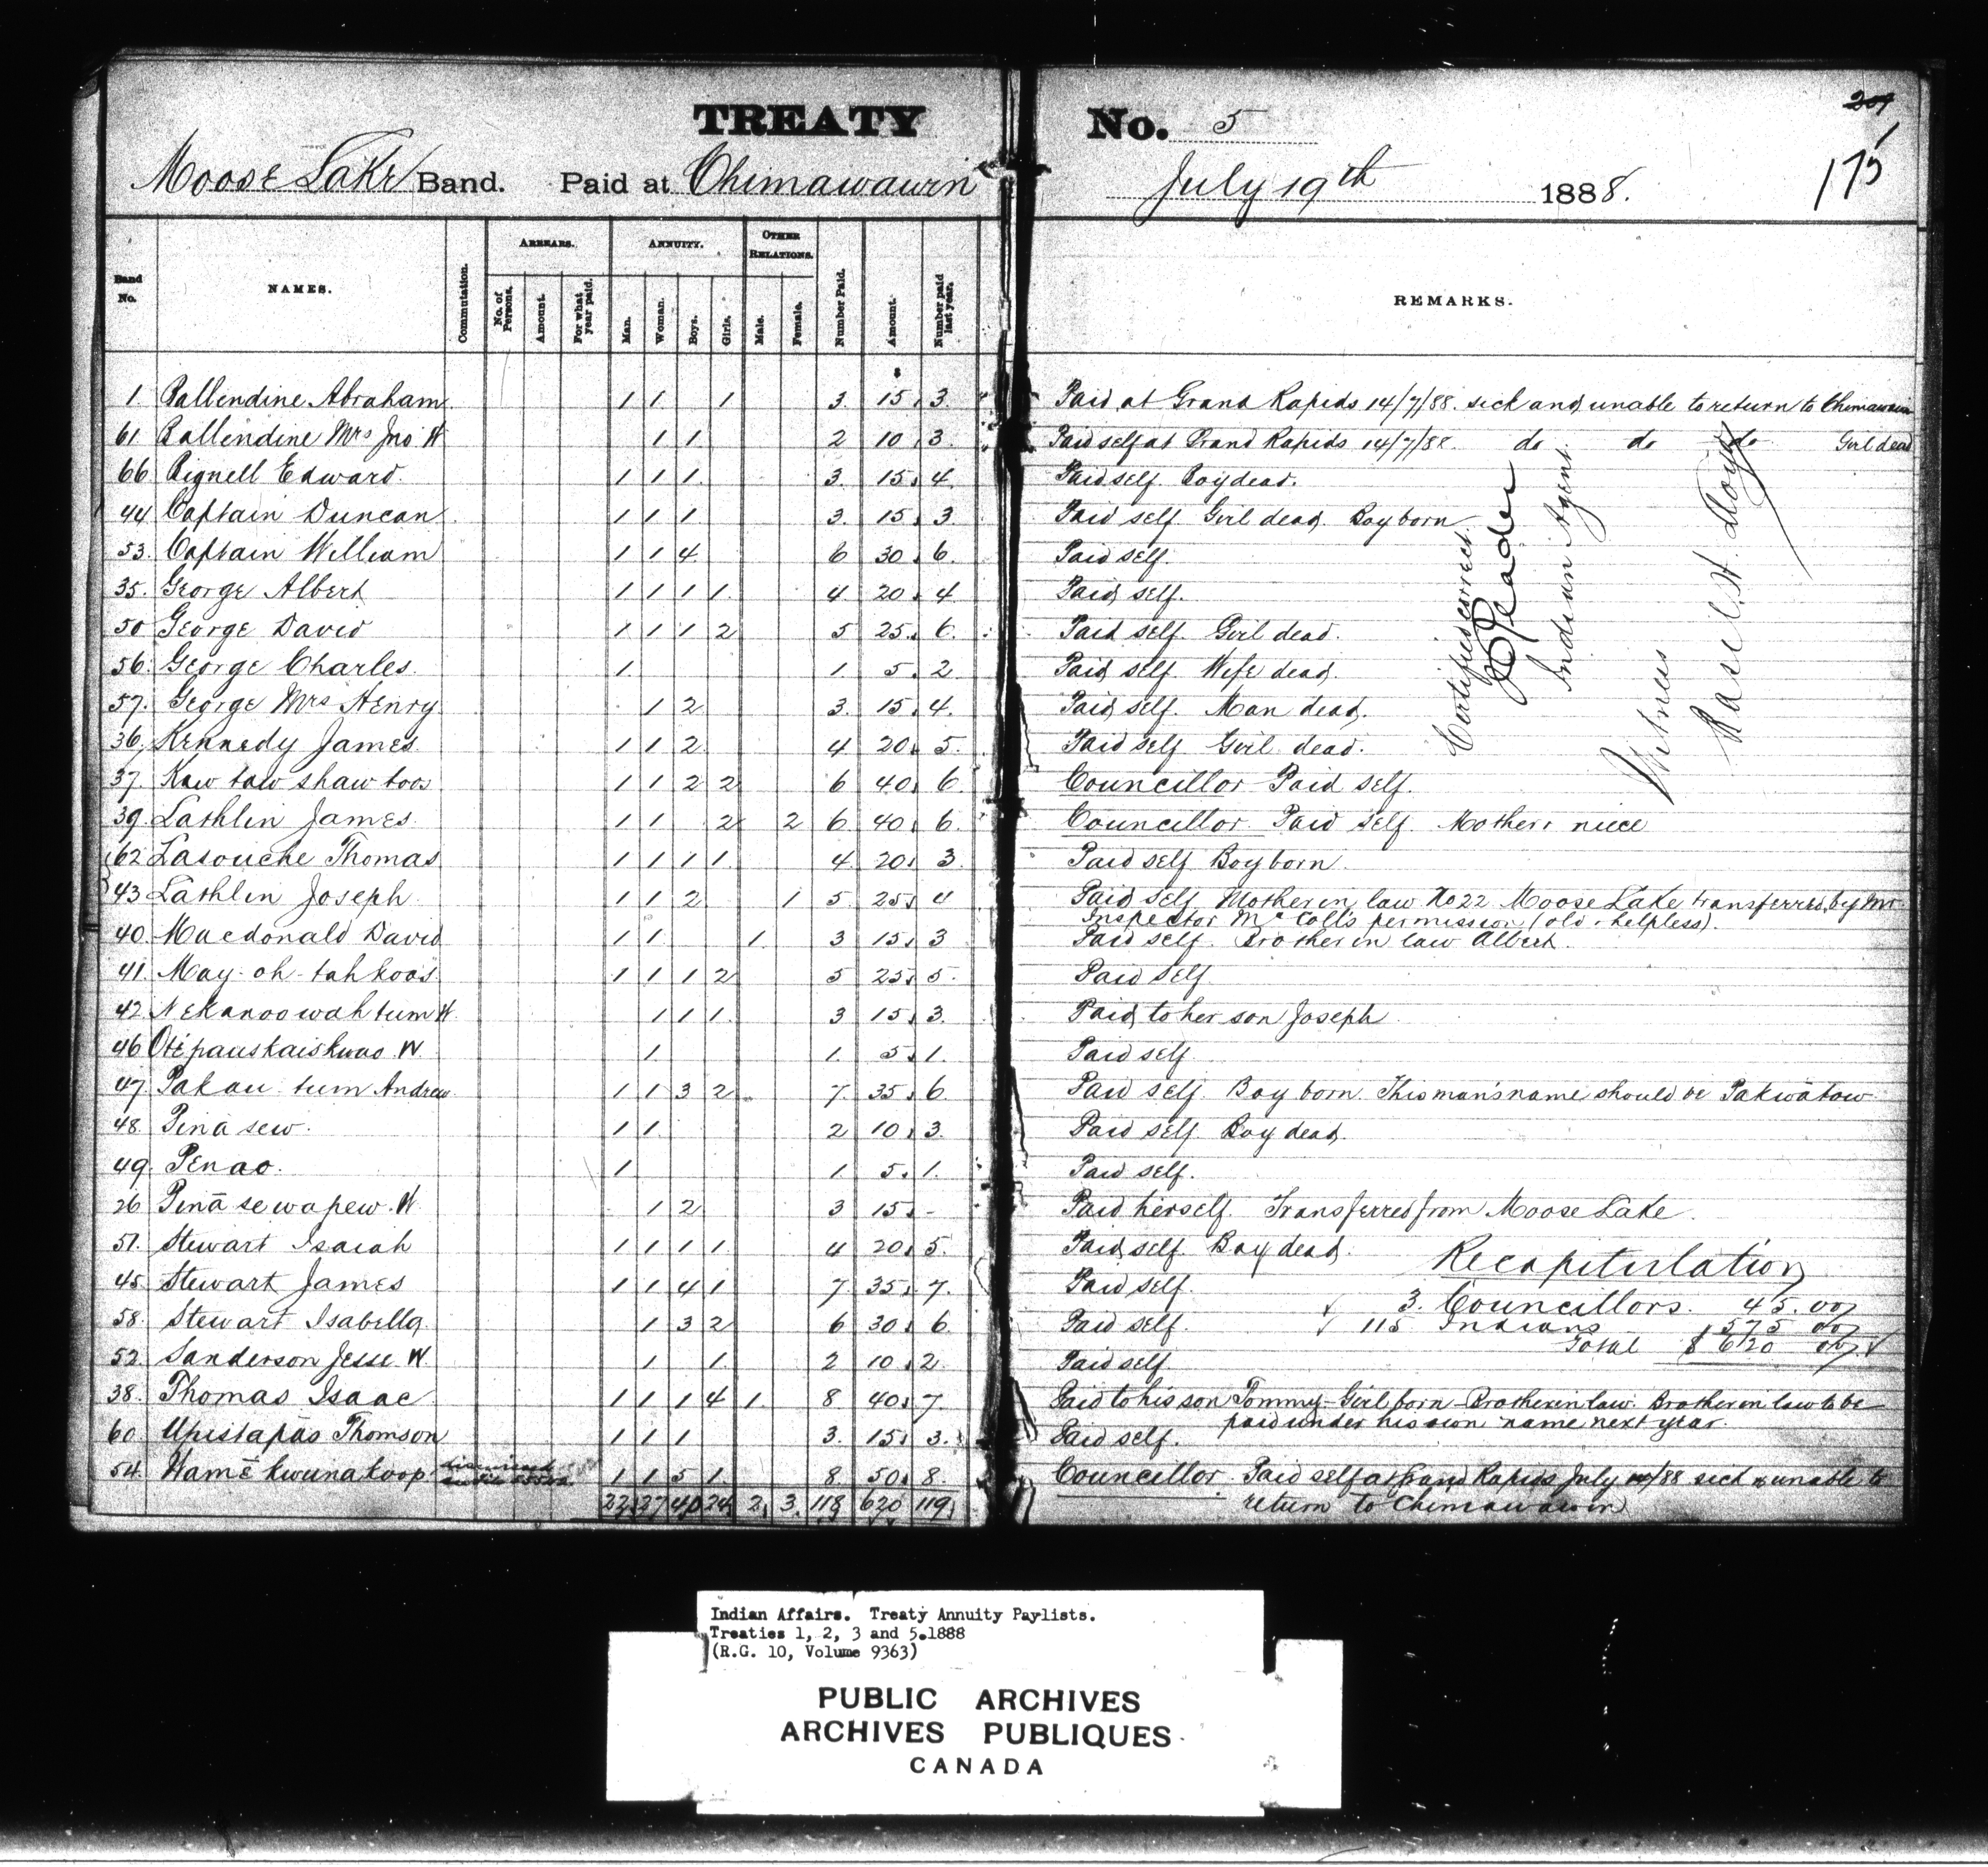 TREATY No. 5
209
175
Moose Lake Band. Paid at Chimawawin July 19th 1888.
Band No. NAMES. Commutation. ARREARS. ANNUITY. OTHER RELATIONS. Number Paid. Amount. Number paid last year. REMARKS.
No. of Persons. Amount. For what year paid. Man. Woman. Boys. Girls. Male. Female.
$
1. Ballendine Abraham 1 1 1 3. 15. 3. Paid at Grand Rapids 14/7/88. sick and unable to return to Chimawawin
61 Ballendine Mrs Jno W 1 1. 2 10 3. Paid self at Grand Rapids 14/7/88. do do do Girl dead
66 Bignell Edward. 1 1 1. 3. 15. 4. Paid self. Boy dead.
44 Captain Duncan 1 1 1 3. 15. 3. Paid self. Girl dead. Boy born
53. Captain William 1 1 4. 6 30. 6. Paid self.
35. George Albert 1 1 1 1. 4. 20. 4. Paid self.
50 George David 1 1 1 2 5 25. 6. Paid self. Girl dead.
56. George Charles. 1. 1. 5. 2. Paid self. Wife dead.
57. George Mrs Henry 1 2. 3. 15. 4. Paid self. Man dead.
36. Kennedy James 1 1 2. 4 20. 5. Paid self Girl dead.
37. Kaw taw shaw toos 1 1 2 2 6 40. 6. Councillor Paid self.
39. Lathlin James. 1 1 2 2 6. 40. 6. Councillor. Paid self. Mother & niece
62 Lasouche Thomas 1 1 1 1. 4. 20. 3. Paid self Boy born.
43 Lathlin Joseph 1 1 2 1 5 25. 4 Paid self Mother in law No 22 Moose Lake transferred by Mr
Inspector McColl's permission (old & helpless).
40. Macdonald David 1 1. 1. 3 15. 3 Paid self. Brother in law Albert.
41. May-oh-tahkoos 1 1 1 2 5 25. 5. Paid self.
42. Nekanoowahtum W. 1 1 1. 3 15. 3. Paid to her son Joseph
46 W. 1 1. 5. 1. Paid self
47. Pakau tum Andrew 1 1 3 2 7. 35. 6 Paid self. Boy born. This man's name should be Pakwatow
48. Pinā sew. 1 1. 2 10. 3. Paid self. Boy dead.
49. Penao. 1 1. 5. 1. Paid self.
26 Pinā se wapew. W. 1 2. 3 15. - Paid herself. Transferred from Moose Lake.
51. Stewart Isaiah 1 1 1 1. 4 20. 5. Paid self. Boy dead.
45. Stewart James 1 1 4 1 7. 35. 7. Paid self.
58. Stewart Isabella 1 3 2 6 30. 6. Paid self.
52. Sanderson Jesse W. 1 1. 2 10. 2. Paid self
38. Thomas Isaac 1 1 1 4 1. 8 40. 7. Paid to his son Tommy. Girl born. Brother in law. Brother in law to be
paid under his own name next year.
60. Upistapas Thomson 1 1 1 3. 15. 3. Paid self.
54. Wamē kwunakoop 1 1 5 1. 8 50. 8. Councillor. Paid self at Grand Rapids July /88 sick & unable to
return to Chimawawin
22 27 40 24 2. 3. 118 620 119
Certified correct
J Reader
Indian Agent
Witness
Basil H. Lloyd
Recapitulation
3. Councillors. 45.00
115 Indians 575 00
Total $ 620 00
Indian Affairs. Treaty Annuity Paylists.
Treaties 1, 2, 3 and 5.1888
(R.G. 10, Volume 9363)
PUBLIC ARCHIVES
ARCHIVES PUBLIQUES
CANADA